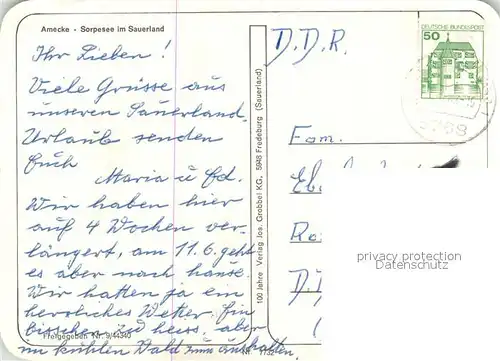 Amecke - Sorpesee im Sauerland
Ihr Lieben!
Viele Grüsse aus
unseren Sauerland-
Urlaub senden
Euch
Maria u Ed.
Wir haben hier
auf 4 Wochen ver-
längert, am 11.6. geht
es aber nach hause.
Wir hatten ja ein
herrliches Wetter. Ein
bisschen zu heiss, aber
im kühlen Wald zum aushalten.
Freigegeben Nr. 9/44340
100 Jahre Verlag Jos. Grobbel KG, 5948 Fredeburg (Sauerland)
D.D.R.
DEUTSCHE BUNDESPOST
50
5768
Fam.
privacy protection
Datenschutz